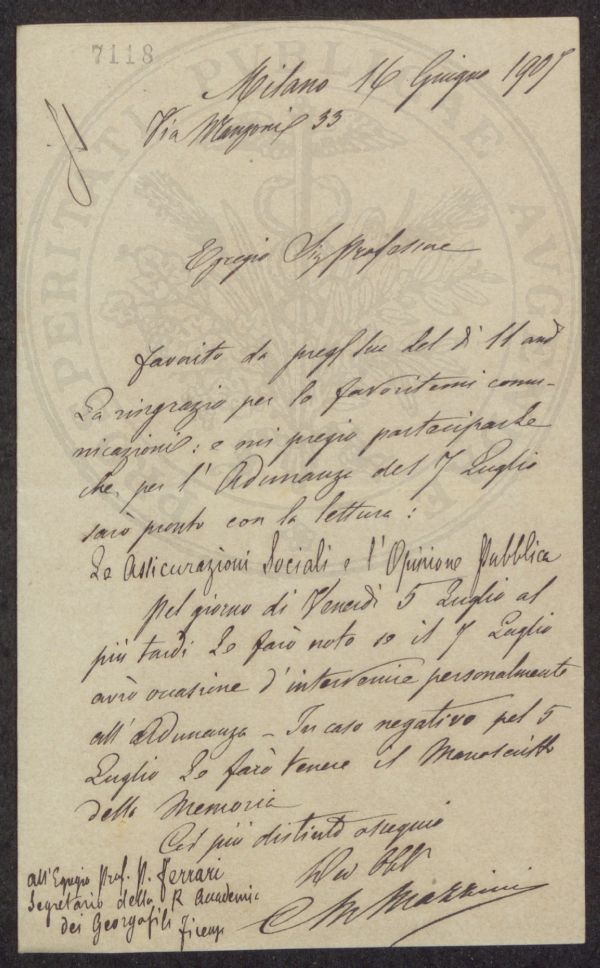 7118
PERITATI PUBLICAE AUG
Milano 14 Giugno 1907
Via Manzoni 33
Egregio Sig Professore
Favorito da preg/ sua del dì 11 and
La ringrazio per le favoritemi comu-
nicazioni: e mi pregio parteciparle
che per l'Adunanza del 7 Luglio
sarò pronto con la lettura:
Le Assicurazioni Sociali e l'Opinione Pubblica
Pel giorno di Venerdì 5 Luglio al
più tardi Le farò noto se il 7 Luglio
avrò occasione d'intervenire personalmente
all'adunanza - In caso negativo pel 5
Luglio Le farò tenere il Manoscritto
della Memoria
Col più distinto ossequio
Suo Obb
M Mazzini
all'Egregio Prof. P. Ferrari
Segretario della R Accademia
dei Georgofili Firenze